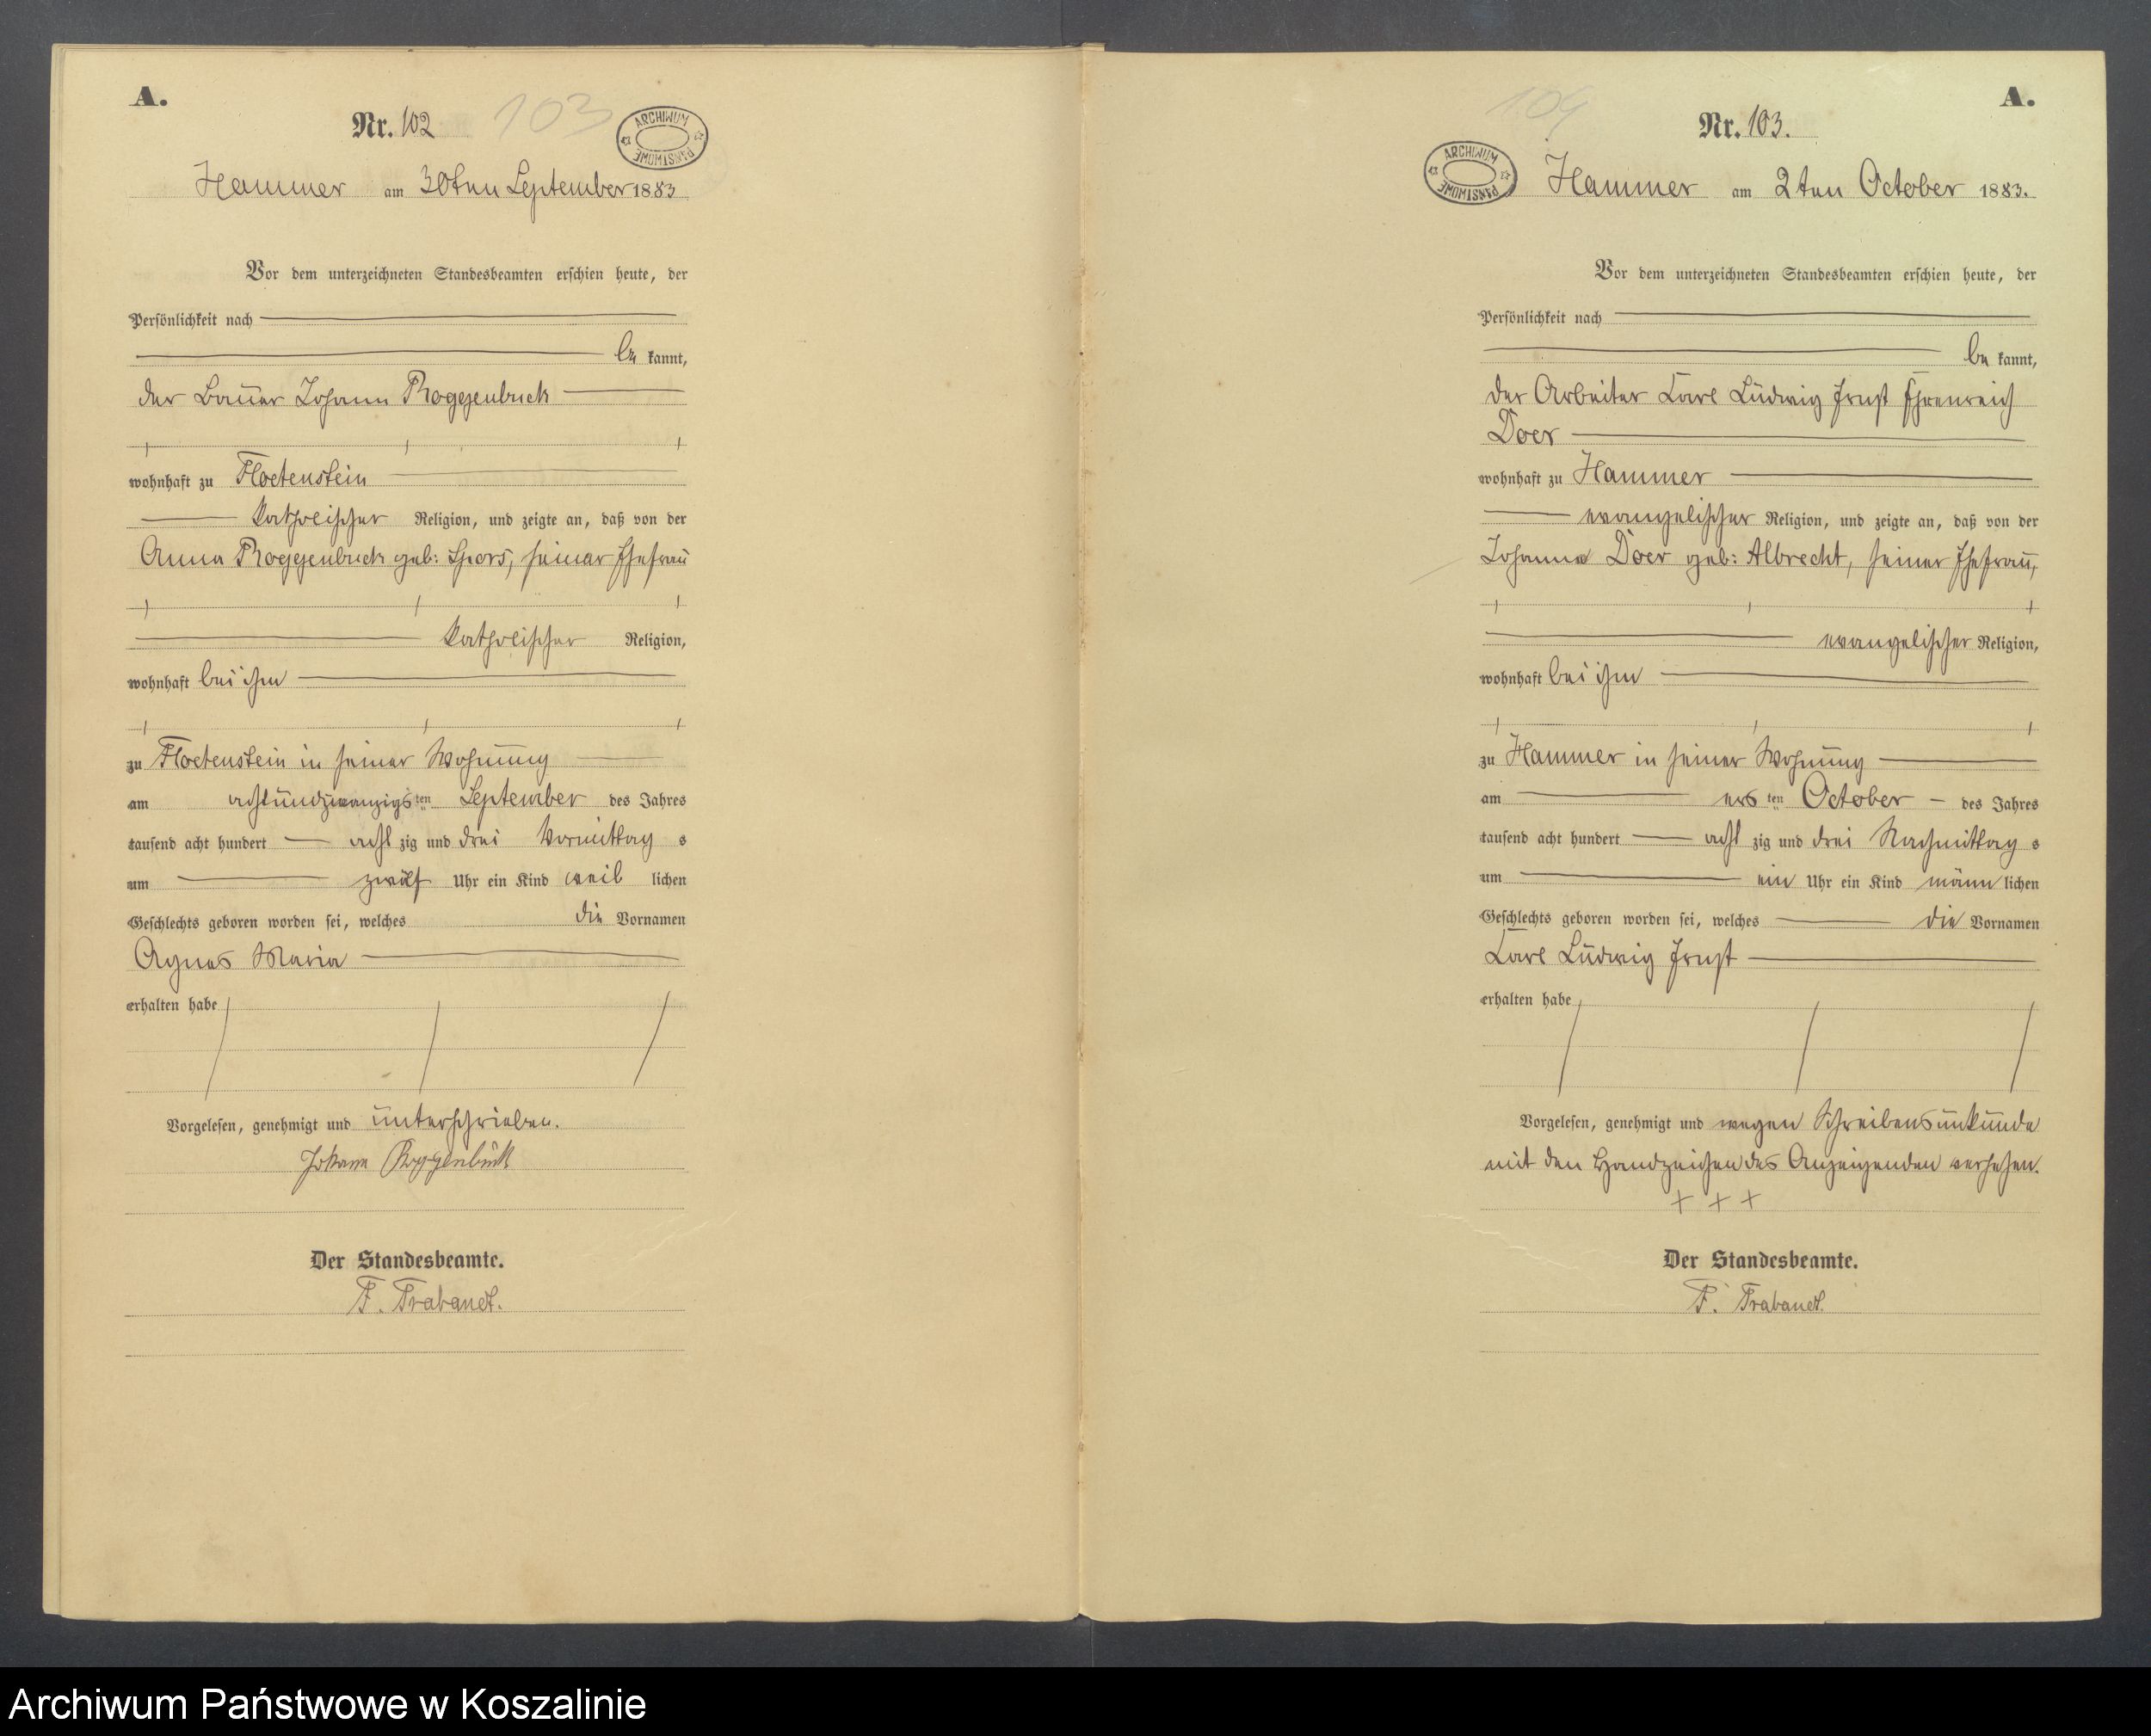 A.
Nr. 102
103
ARCHIWUM PAŃSTWOWE
Hammer am 30ten September 1883
Vor dem unterzeichneten Standesbeamten erschien heute, der
Persönlichkeit nach
be kannt,
der Bauer Johann Roggenbuck
wohnhaft zu Floetenstein
katholischer Religion, und zeigte an, daß von der
Anna Roggenbuck geb: Spors, seiner Ehefrau
katholischer Religion,
wohnhaft bei ihm
zu Floetenstein in seiner Wohnung
am achtundzwanzigs ten September des Jahres
tausend acht hundert acht zig und drei Vormittag s
um zwölf Uhr ein Kind weib lichen
Geschlechts geboren worden sei, welches die Vornamen
Agnes Maria
erhalten habe
Vorgelesen, genehmigt und unterschrieben.
Johann Roggenbuck
Der Standesbeamte.
F. Trabandt.
A.
Nr. 103.
104
ARCHIWUM PAŃSTWOWE
Hammer am 2ten October 1883.
Vor dem unterzeichneten Standesbeamten erschien heute, der
Persönlichkeit nach
be kannt,
der Arbeiter Carl Ludwig Ernst Ehrenreich
Doer
wohnhaft zu Hammer
evangelischer Religion, und zeigte an, daß von der
Johanne Doer geb: Albrecht, seiner Ehefrau,
evangelischer Religion,
wohnhaft bei ihm
zu Hammer in seiner Wohnung
am ers ten October des Jahres
tausend acht hundert acht zig und drei Nachmittag s
um ein Uhr ein Kind männ lichen
Geschlechts geboren worden sei, welches die Vornamen
Carl Ludwig Ernst
erhalten habe
Vorgelesen, genehmigt und wegen Schreibensunkunde
mit den Handzeichen des Anzeigenden versehen.
+ + +
Der Standesbeamte.
F. Trabandt.
Archiwum Państwowe w Koszalinie